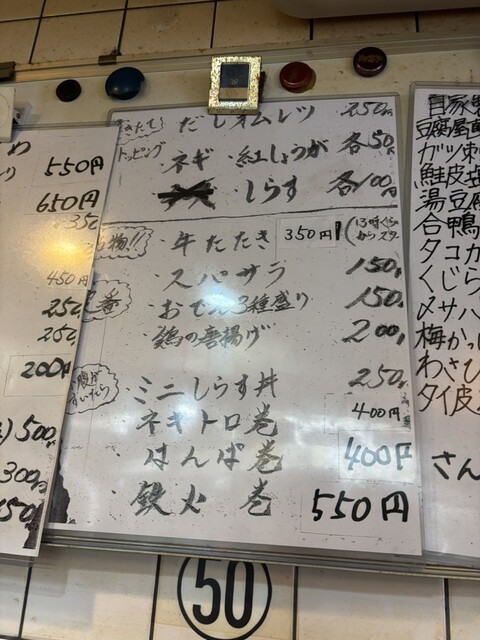 550円
650円
350
450円
250
250
200円
500
300
150
だしオムレツ 250
トッピング ネギ・紅しょうが 各50
しらす 各100円
牛たたき 350円 (13時ぐらいからスタ
・スパサラ 150
・おでん3種盛り 150
・鶏の唐揚げ 200
・ミニしらす丼 250
ネギトロ巻 400円
はんぱ巻 400円
・鉄火巻 550円
自家製
豆腐屋
ガツ刺
鮭皮
湯豆腐
合鴨
タコカ
くじら
〆サバ
梅かっ
わさび
タイ皮
さん
50